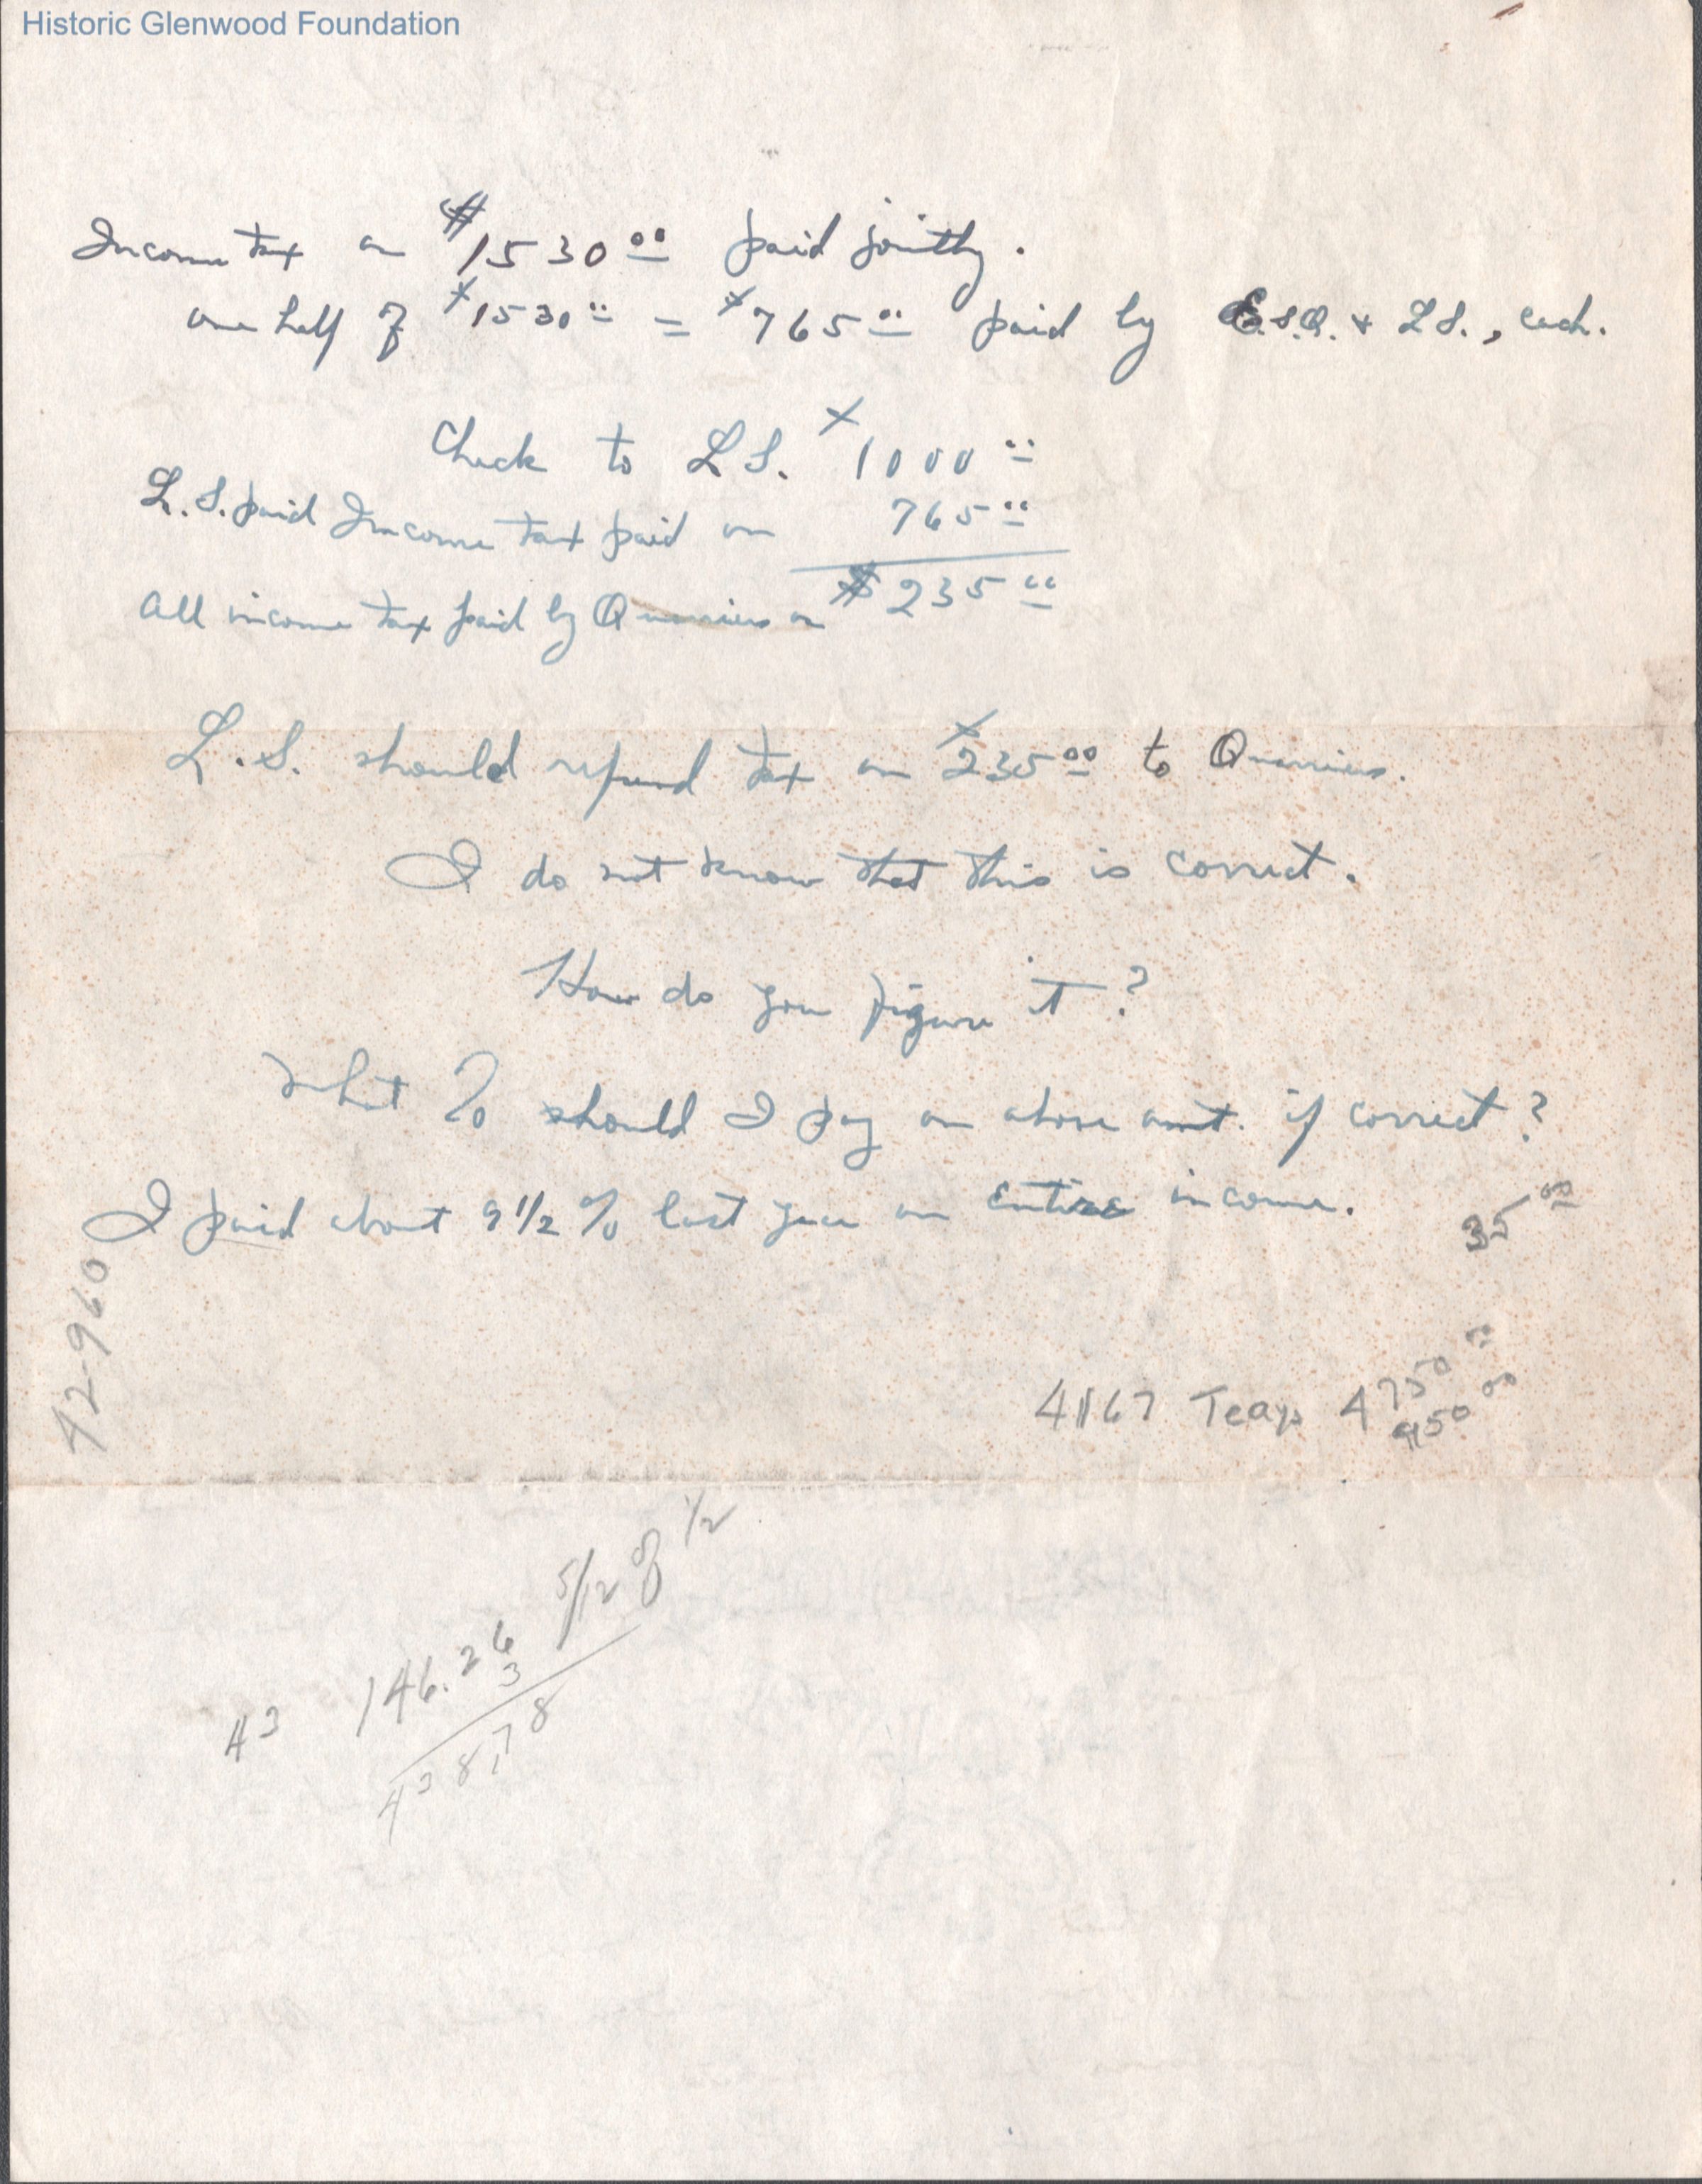 Historic Glenwood Foundation
Income tax on $1530.00 paid jointly.
one half of $1530.00 = $765.00 paid by E.S.Q. & L.S., each.
Check to L.S. $1000.00
L.S. paid Income tax paid on 765.00
All income tax paid by Quarrier on $235.00
L.S. should refund tax on $235.00 to Quarriers.
I do not know that this is correct.
How do you figure it?
What % should I pay on above amt. if correct?
I paid about 9 1/2 % last year on Entire income.
35 00
42-960
4167 Teays 4750 00
950 00
5/12 of 1/2
43 146.26
3
438.78